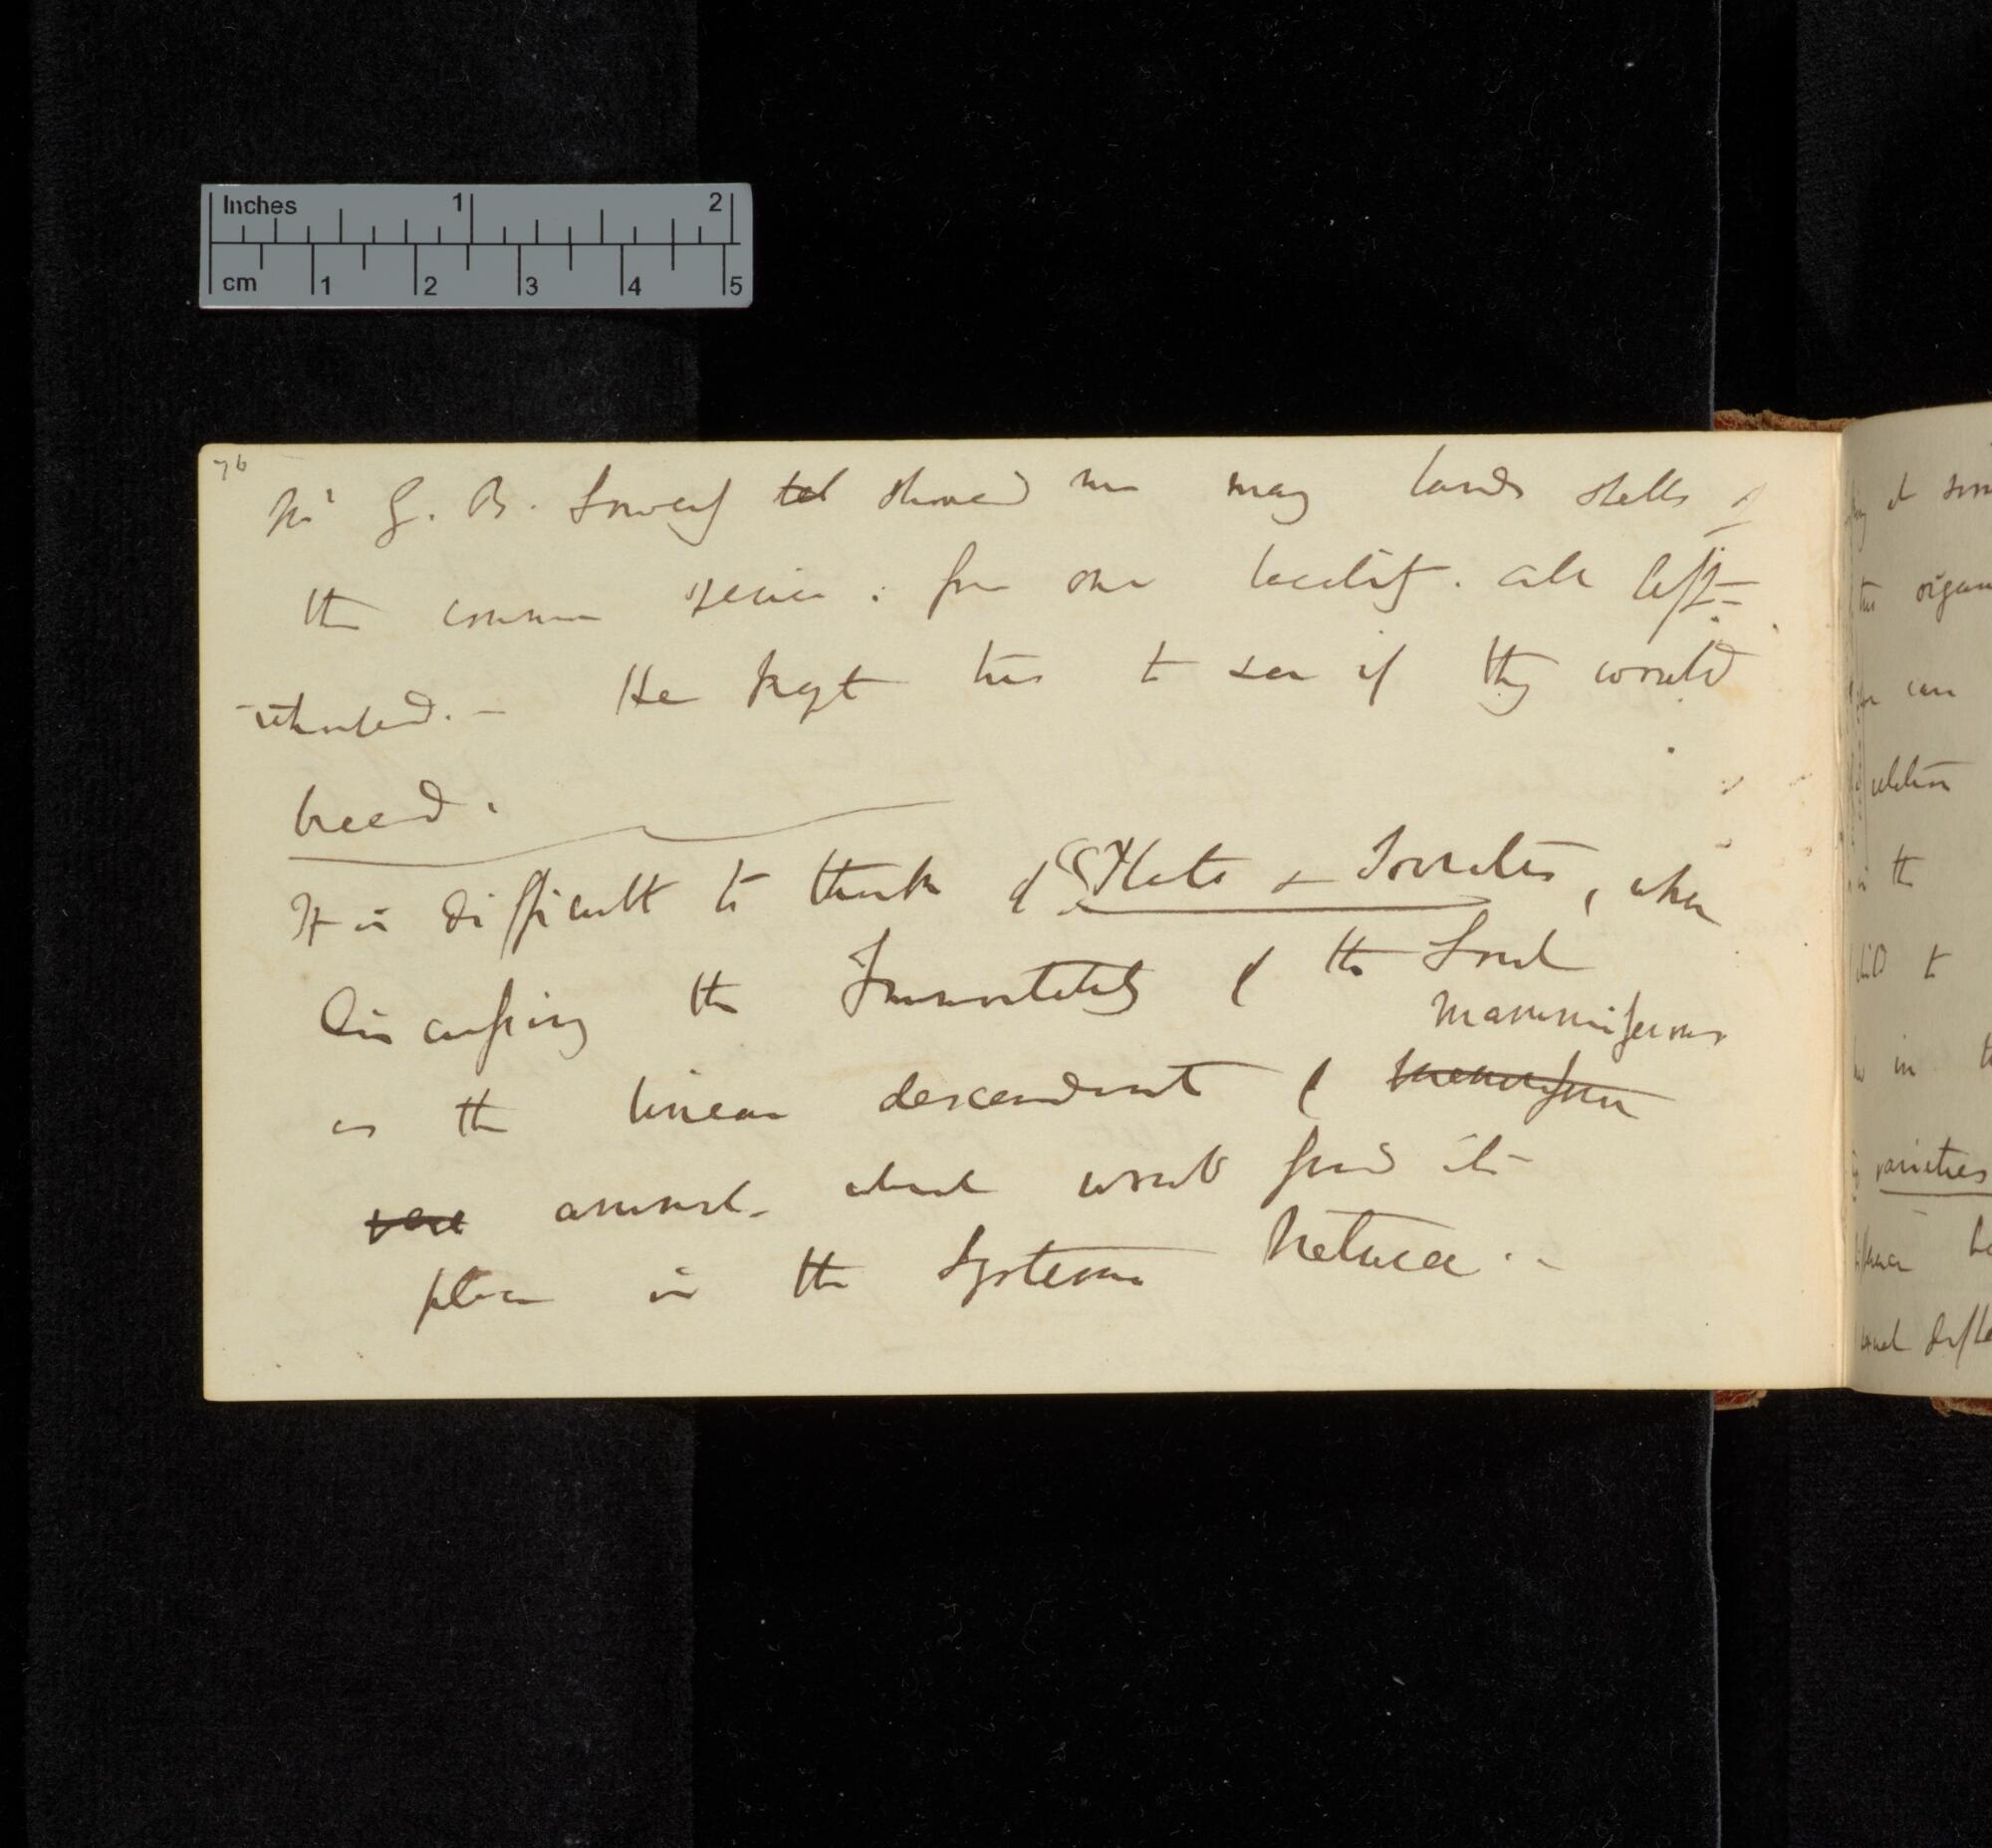 Inches 1 2
cm 1 2 3 4 5
76
Mr G. B. Sowerby tol showed me many lands shells of
the common species: from one locality. all left-
whorled. — He kept two to see if they would
breed.
It is difficult to think of Plato & Socrates, when
discussing the Immortality of the Soul
mammiferous
as the linear descendant of
animal. which would find its
place in the Systema Naturae. —
organ
can
in the
to
in
varieties